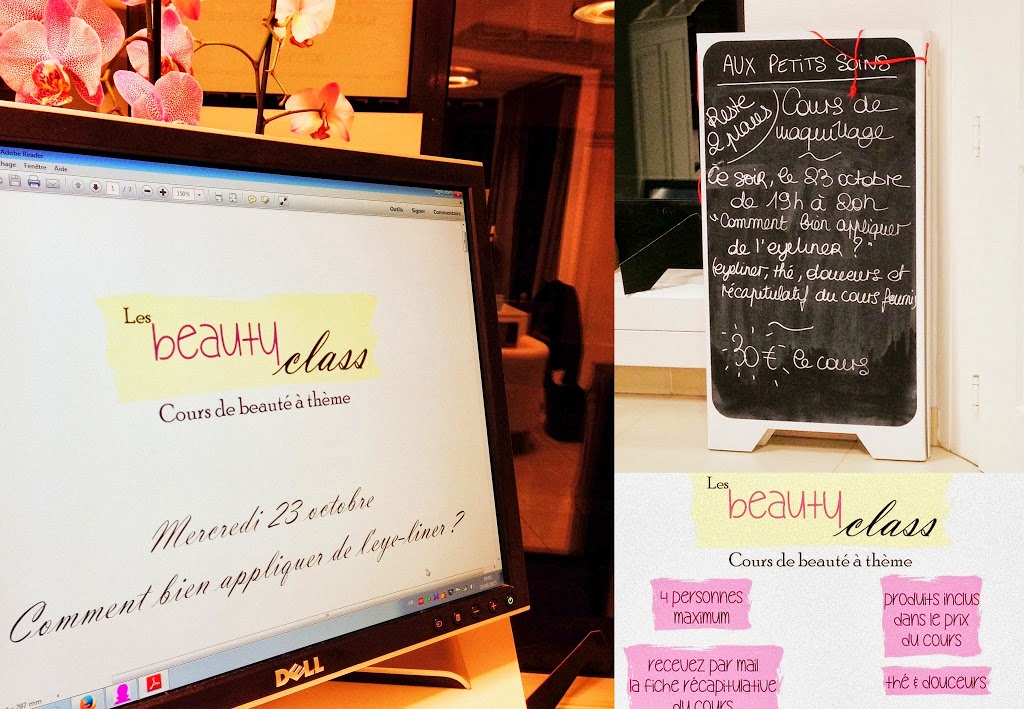 Adobe Reader
Fenêtre Aide
1 / 7
150%
Outils Signer Commentaire
Les
beauty
class
Cours de beauté à thème
Mercredi 23 octobre
Comment bien appliquer de l'eye-liner ?
DELL
AUX PETITS SOINS
Reste
2 places
Cours de
maquillage
Ce soir, le 23 octobre
de 19h à 20h
"Comment bien appliquer
de l'eyeliner ?"
(eyeliner, thé, douceurs et
récapitulatif du cours fourni)
30 € le cours
Les
beauty
class
Cours de beauté à thème
4 personnes
maximum
produits inclus
dans le prix
du cours
recevez par mail
la fiche récapitulative
du cours
thé & douceurs